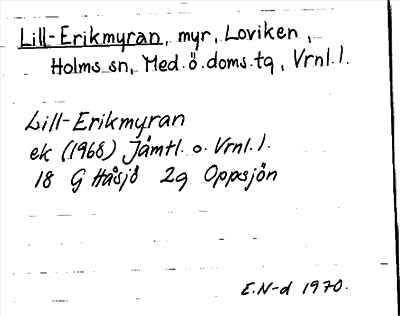 Lill-Erikmyran, myr, Loviken,
Holms sn, Med.ö.doms.tg, Vrnl.l.
Lill-Erikmyran
ek (1968) Jämtl. o. Vrnl.l.
18 G Håsjö 2g Oppsjön
E.N-d 1970.